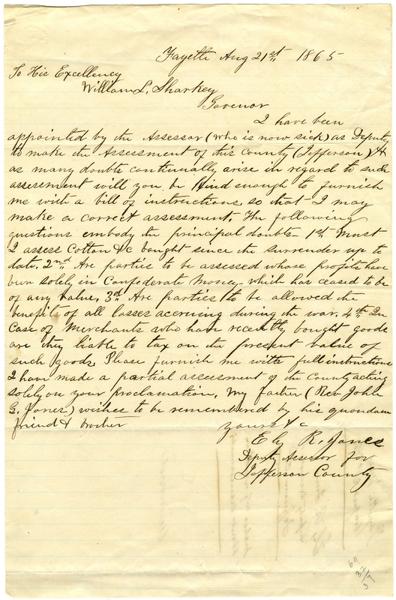 Fayette Aug 21st 1865
To His Excellency
William L. Sharkey
Govenor
I have been
appointed by the Assessor (who is now sick) as Deputy
to make the Assessment of this County (Jefferson) &
as many doubts continually arise in regard to such
assessment will you be kind enough to furnish
me with a bill of instructions, so that I may
make a correct assessment. The following
questions embody the principal doubts 1st Must
I assess Cotton &c bought since the surrender up to
date, 2nd Are parties to be assessed whose profits have
been solely in Confederate Money, which has ceased to be
of any value, 3rd Are parties to be allowed the
benefits of all losses accruing during the war, 4th In
Case of Merchants who have recently bought goods
are they liable to tax on the present value of
such goods, Please furnish me with full instructions
I have made a partial assessment of the County acting
solely on your proclamation, My father (Rev. John
G. Jones) wishes to be remembered by his quondam
friend & brother
Yours &c
R. Jones
Deputy Assessor for
Jefferson County